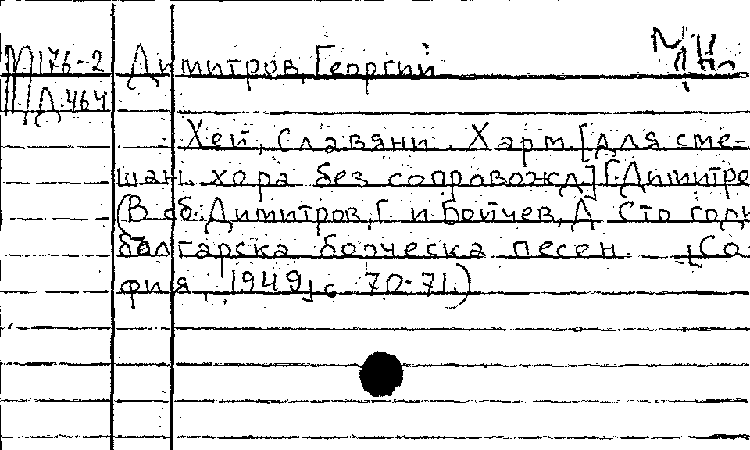 М 176-2 Димитров, Георгий
Д 464
Хей, Славяни. Харм. [для сме-
шан. хора без сопровожд.] [Димитро
(В сб: Димитров, Г. и Бойчев, Д. Сто годи
българска борческа песен. [Со-
фия, 1949], с. 70-71.)